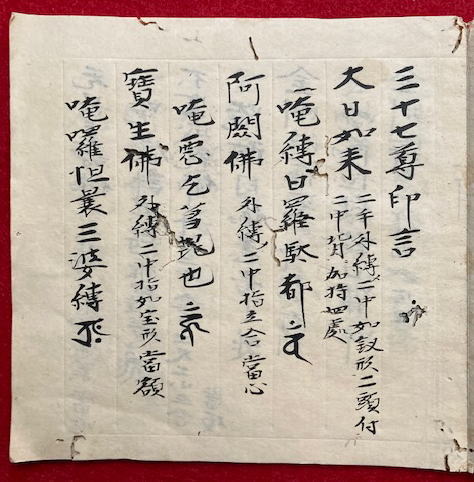 三十七尊印言
大日如来 二手外縛二中如釼形二頭付
二中背加持四處
唵縛日羅駄都
阿閦佛 外縛二中指立合當心
唵悪乞蒭毘也
寶生佛 外縛二中指如宝形當額
唵囉怛曩三婆縛